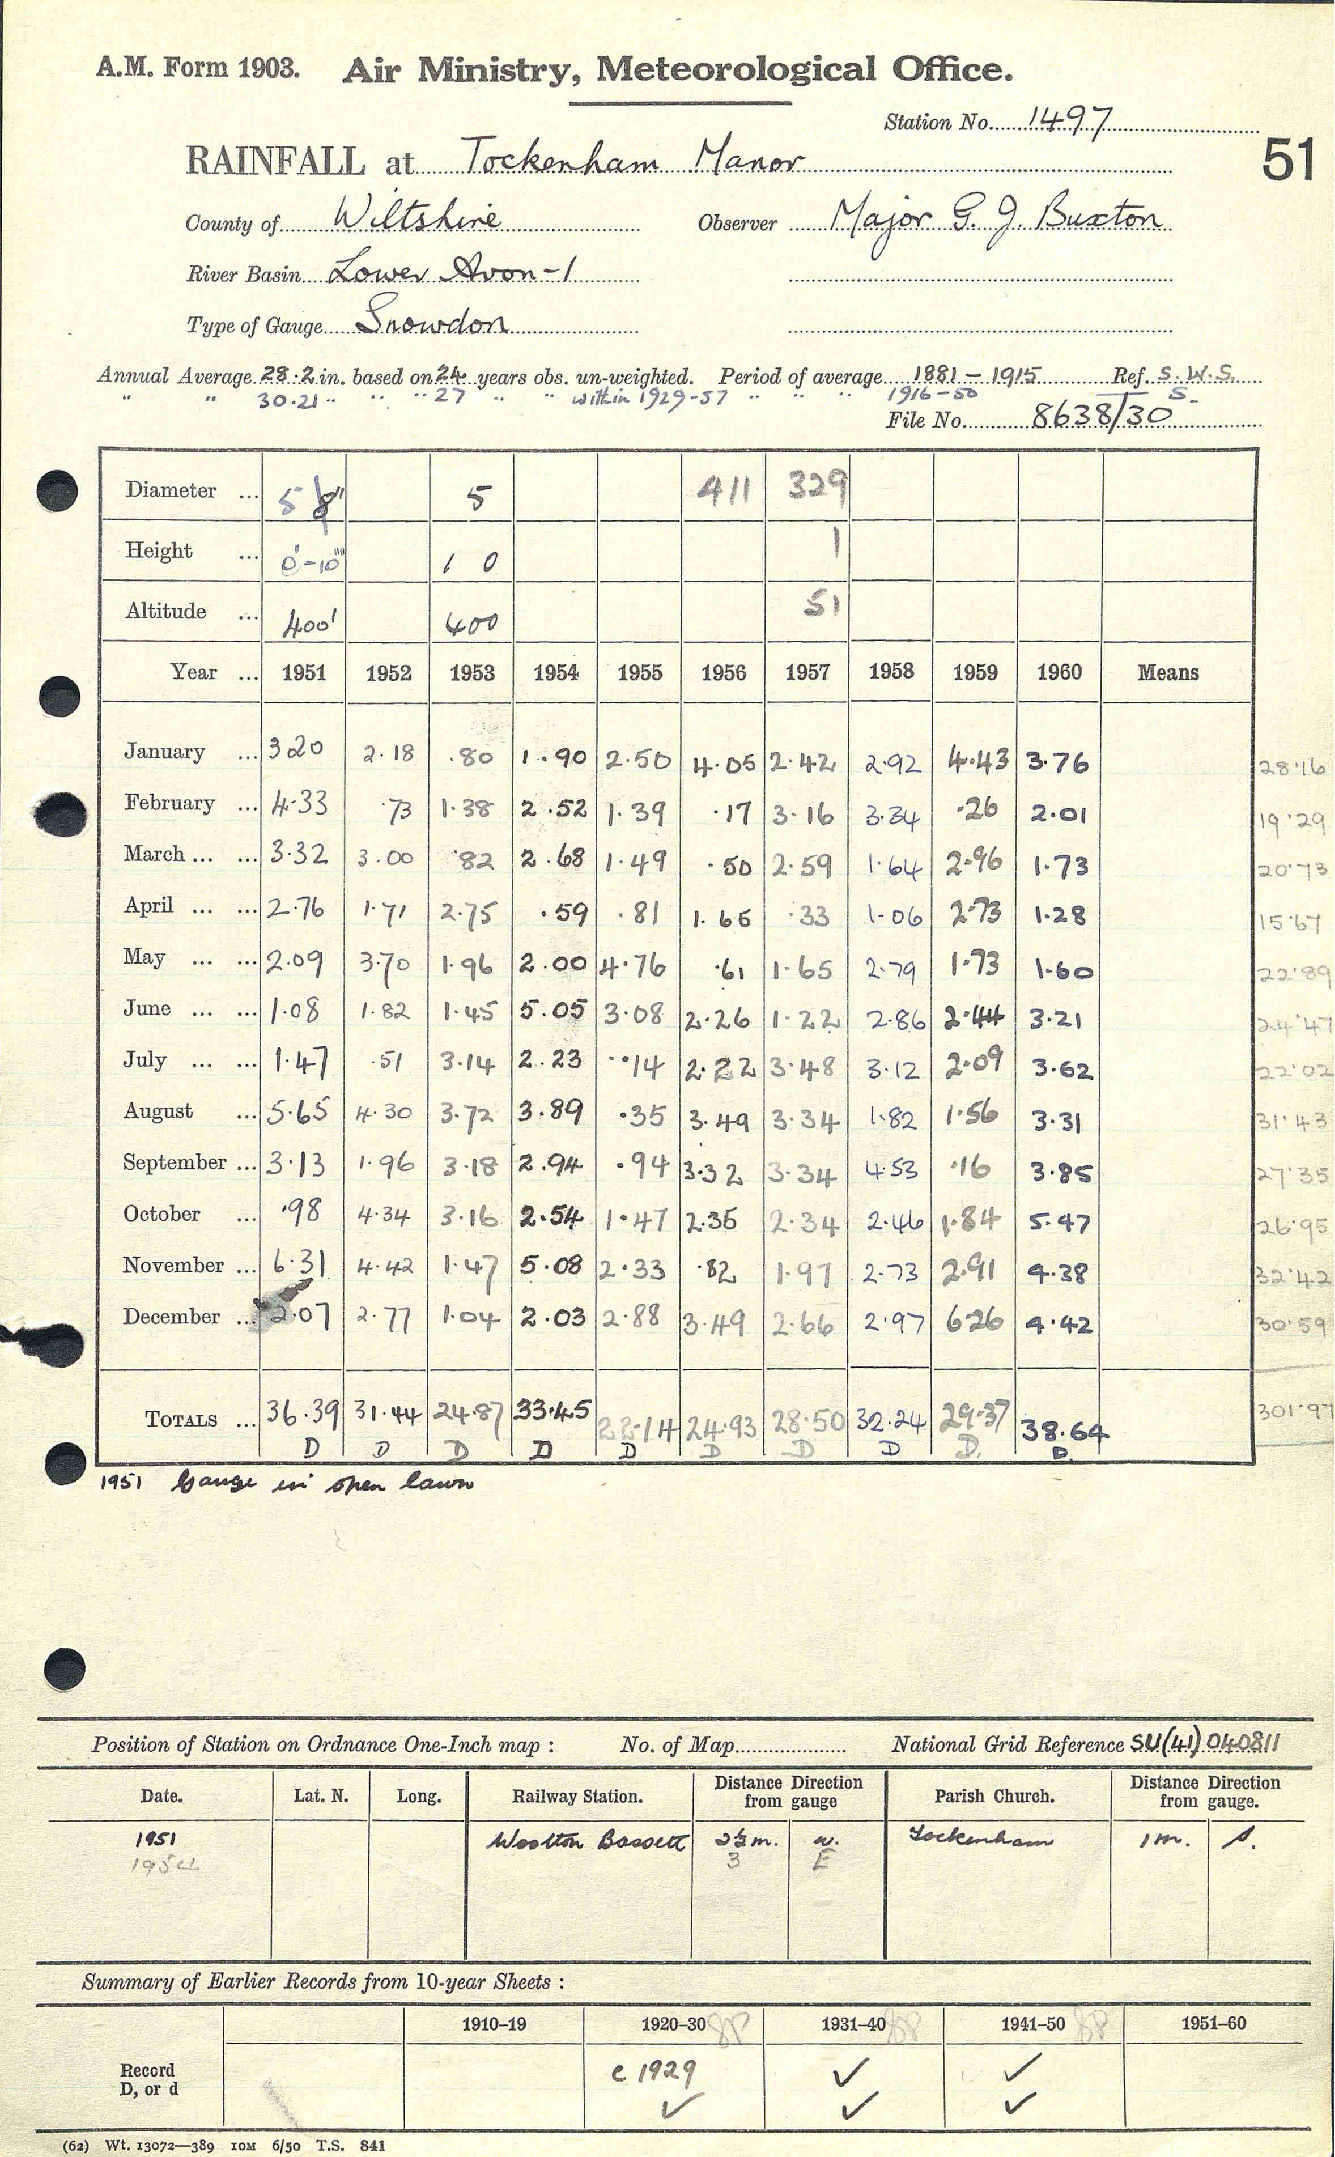 A.M. Form 1903. Air Ministry, Meteorological Office.
Station No. 1497
51
RAINFALL at Tockenham Manor
County of Wiltshire Observer Major G. J. Buxton
River Basin Lower Avon-1
Type of Gauge Snowdon
Annual Average 28.2 in. based on 24 years obs. un-weighted. Period of average 1881-1915 Ref. S.W.S.
" " 30.21 " " " 27 " " within 1929-57 " " " 1916-50 S.
File No. 8638/30
Diameter ... 5 8" 5 411 329
Height ... 0'-10" 1 0 1
Altitude ... 400' 400 51
Year ... 1951 1952 1953 1954 1955 1956 1957 1958 1959 1960 Means
January ... 3 20 2.18 .80 1.90 2.50 4.05 2.42 2.92 4.43 3.76 28.16
February ... 4.33 .73 1.38 2.52 1.39 .17 3.16 3.34 .26 2.01 19.29
March ... ... 3.32 3.00 .82 2.68 1.49 .50 2.59 1.64 2.96 1.73 20.73
April ... ... 2.76 1.71 2.75 .59 .81 1.65 .33 1.06 2.73 1.28 15.67
May ... ... 2.09 3.70 1.96 2.00 4.76 .61 1.65 2.79 1.73 1.60 22.89
June ... ... 1.08 1.82 1.45 5.05 3.08 2.26 1.22 2.86 2.44 3.21 24.47
July ... ... 1.47 .51 3.14 2.23 .14 2.22 3.48 3.12 2.09 3.62 22.02
August ... 5.65 4.30 3.72 3.89 .35 3.49 3.34 1.82 1.56 3.31 31.43
September ... 3.13 1.96 3.18 2.94 .94 3.32 3.34 4.53 .16 3.85 27.35
October ... .98 4.34 3.16 2.54 1.47 2.35 2.34 2.46 1.84 5.47 26.95
November ... 6.31 4.42 1.47 5.08 2.33 .82 1.97 2.73 2.91 4.38 32.42
December ... 2.07 2.77 1.04 2.03 2.88 3.49 2.66 2.97 6.26 4.42 30.59
TOTALS ... 36.39 31.44 24.87 33.45 22.14 24.93 28.50 32.24 29.37 38.64 301.97
D D D D D D D D D. D.
1951 Gauge in open lawn
Position of Station on Ordnance One-Inch map : No. of Map National Grid Reference SU(41)040811
Date. Lat. N. Long. Railway Station. Distance Direction from gauge Parish Church. Distance Direction from gauge.
1951 Wootton Bassett 2½ m. W. Tockenham 1 m. S.
1954 3 E
Summary of Earlier Records from 10-year Sheets :
1910-19 1920-30 1931-40 1941-50 1951-60
Record D, or d c 1929 ✓ ✓
✓ ✓ ✓
(62) Wt. 13072—389 10M 6/50 T.S. 841